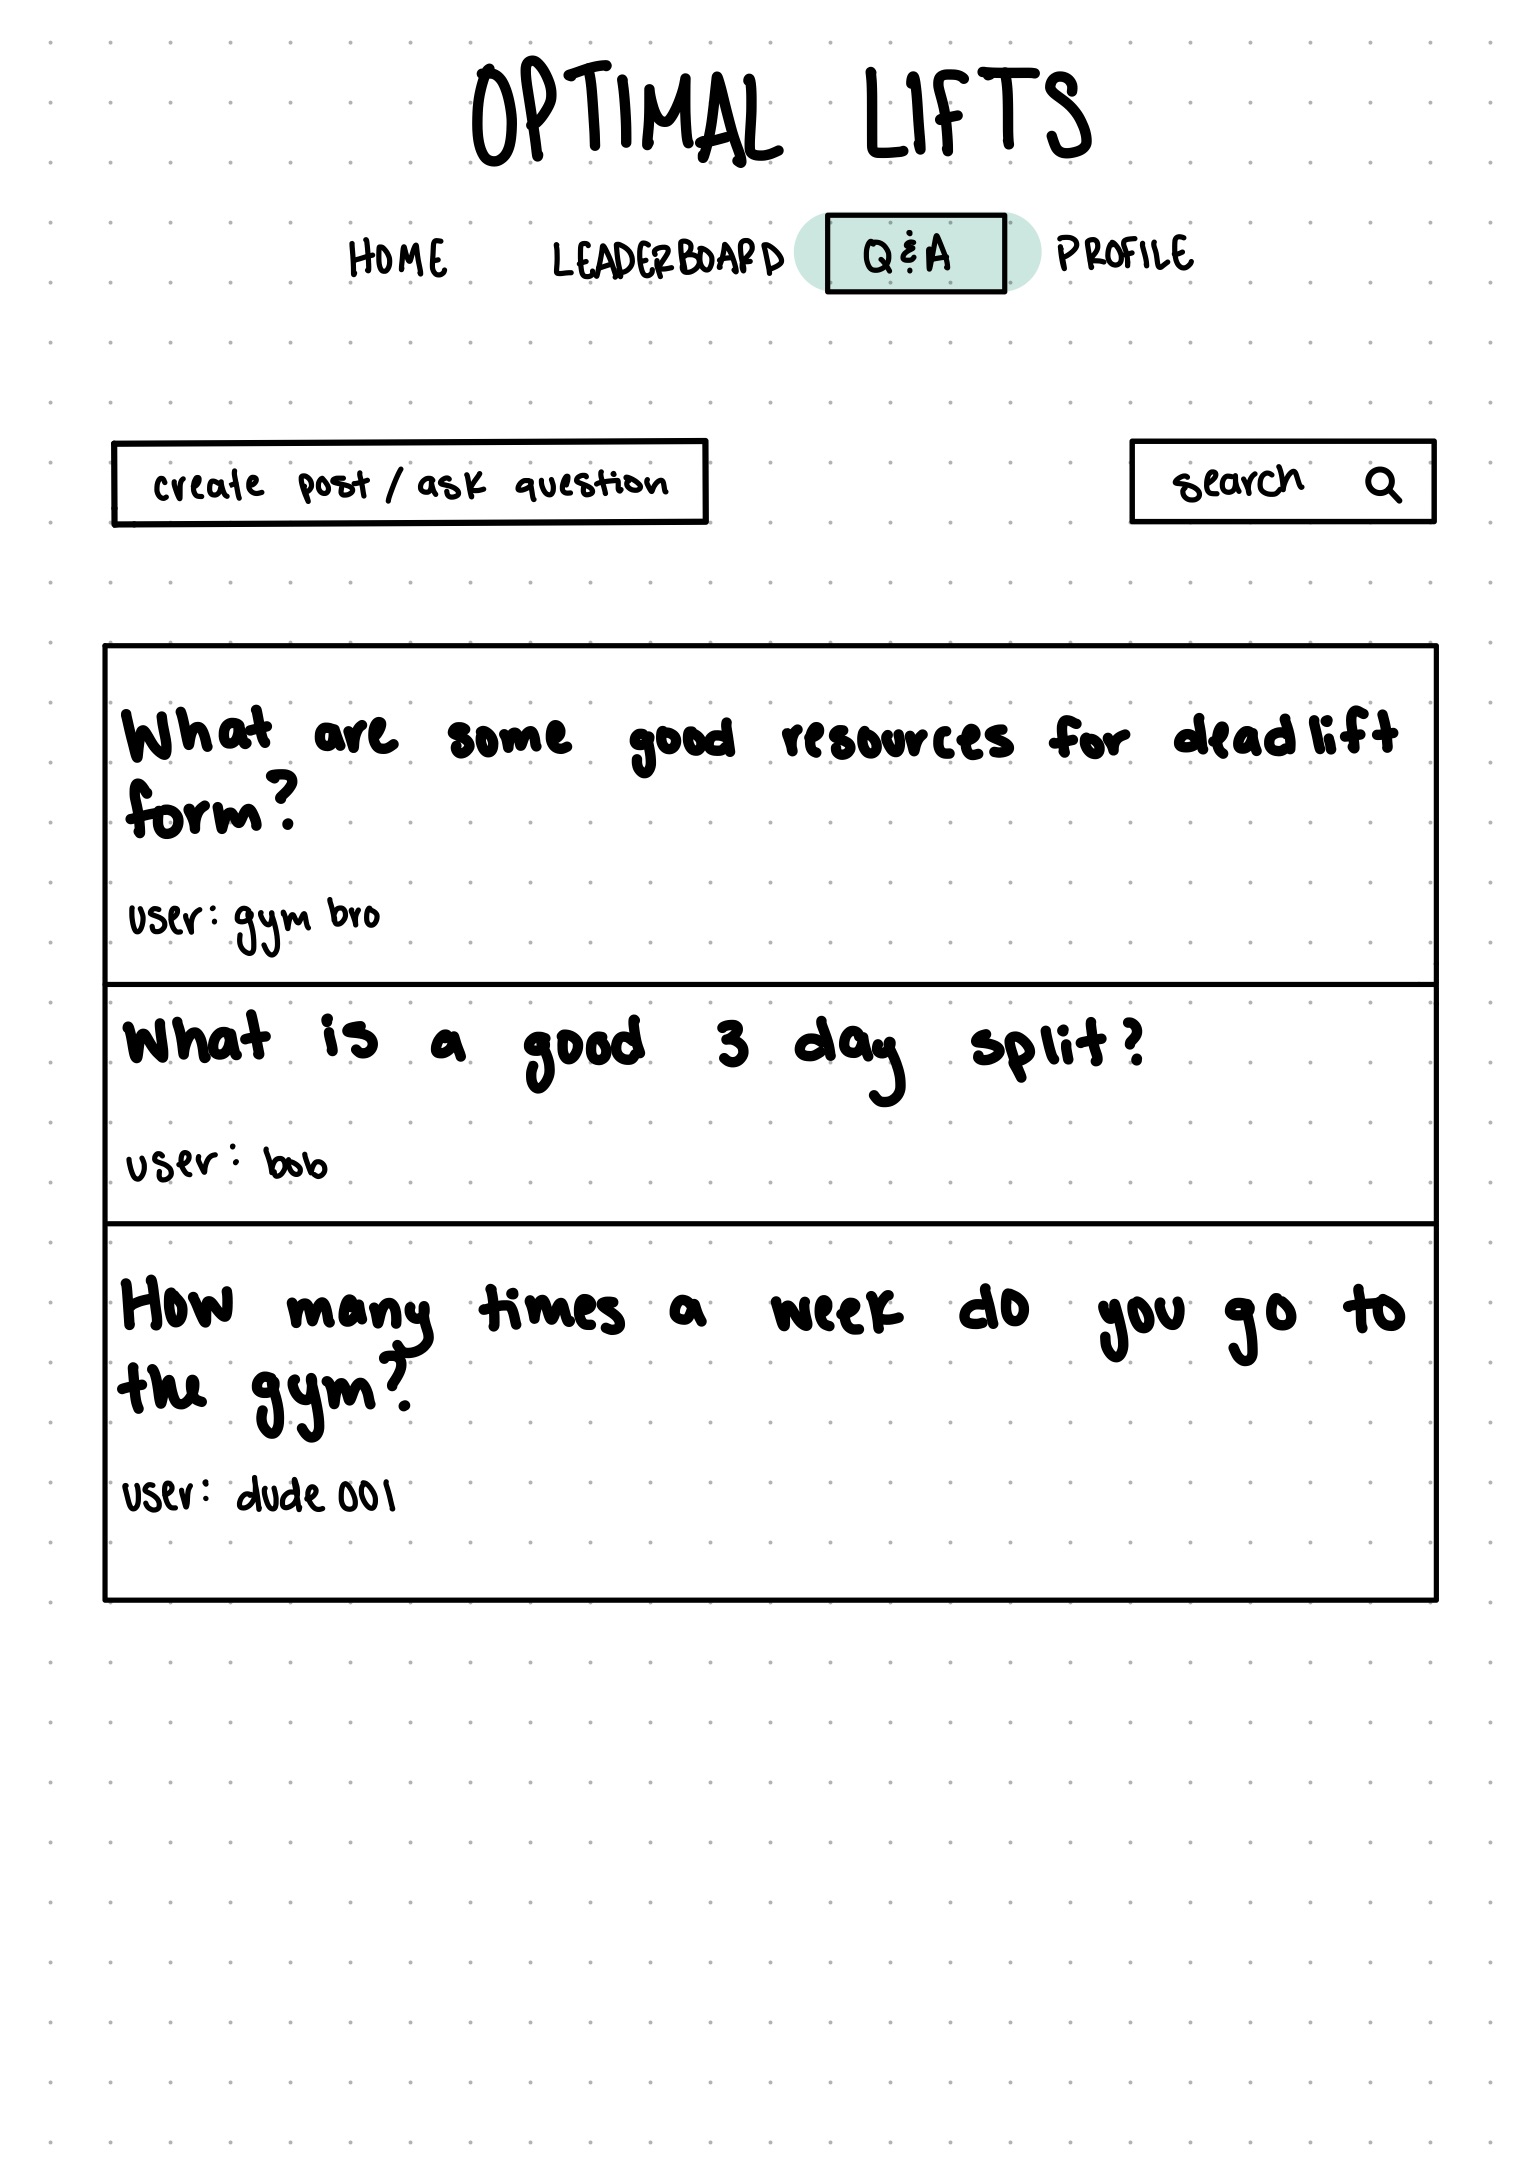 OPTIMAL LIFTS
HOME LEADERBOARD Q & A PROFILE
create post / ask question search
What are some good resources for deadlift
form?
user: gym bro
What is a good 3 day split?
user: bob
How many times a week do you go to
the gym?
user: dude 001